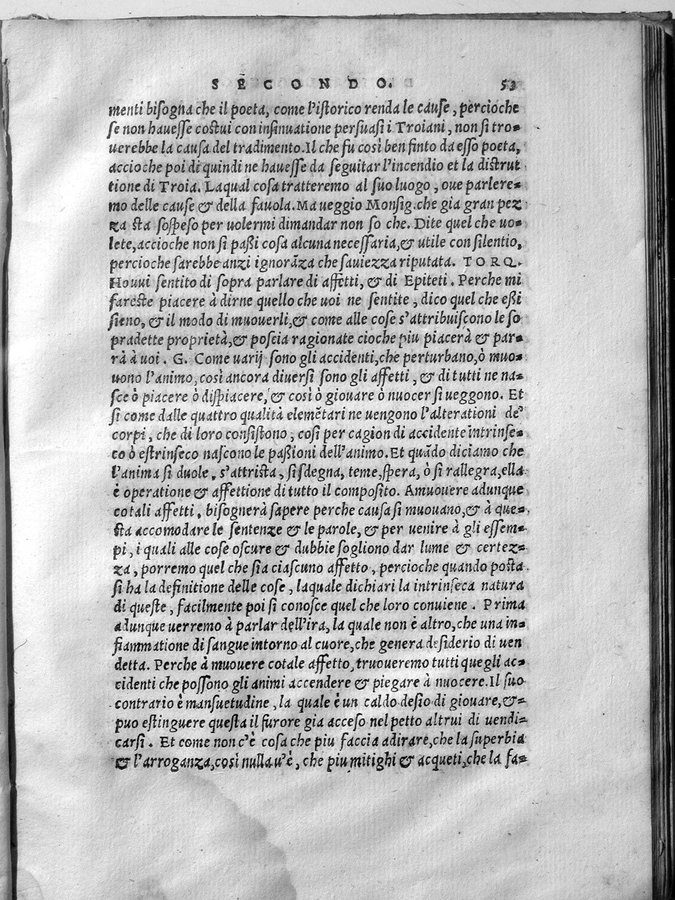 SECONDO. 53
menti bisogna che il poeta, come l'istorico renda le cause, percioche
se non hauesse costui con insinuatione persuasi i Troiani, non si tro-
uerebbe la causa del tradimento. Il che fu così ben finto da esso poeta,
accioche poi di quindi ne hauesse da seguitar l'incendio et la distrut
tione di Troia. Laqual cosa tratteremo al suo luogo, oue parlere-
mo delle cause & della fauola. Ma ueggio Monsig. che gia gran pez
za sta sospeso per uolermi dimandar non so che. Dite quel che uo-
lete, accioche non si passi cosa alcuna necessaria, & utile con silentio,
percioche sarebbe anzi ignorãza che sauiezza riputata. TORQ.
Houui sentito di sopra parlare di affetti, & di Epiteti. Perche mi
fareste piacere à dirne quello che uoi ne sentite, dico quel che essi
sieno, & il modo di muouerli, & come alle cose s'attribuiscono le so
pradette proprietà, & poscia ragionate cioche piu piacerà & par-
rà à uoi. G. Come uarij sono gli accidenti, che perturbano, ò muo-
uono l'animo, così ancora diuersi sono gli affetti, & di tutti ne na-
sce ò piacere ò dispiacere, & così ò giouare ò nuocer si ueggono. Et
si come dalle quattro qualità elemẽtari ne uengono l'alterationi de'
corpi, che di loro consistono, così per cagion di accidente intrinse-
co ò estrinseco nascono le passioni dell'animo. Et quãdo diciamo che
l'anima si duole, s'attrista, si sdegna, teme, spera, ò si rallegra, ella
è operatione & affettione di tutto il composito. A muouere adunque
cotali affetti, bisognerà sapere perche causa si muouano, & à que-
sta accomodare le sentenze & le parole, & per uenire à gli essem-
pi, i quali alle cose oscure & dubbie sogliono dar lume & certez-
za, porremo quel che sia ciascuno affetto, percioche quando posta
si ha la definitione delle cose, laquale dichiari la intrinseca natura
di queste, facilmente poi si conosce quel che loro conuiene. Prima
adunque uerremo à parlar dell'ira, la quale non è altro, che una in-
fiammatione di sangue intorno al cuore, che genera desiderio di uen
detta. Perche à muouere cotale affetto, truoueremo tutti que gli ac-
cidenti che possono gli animi accendere & piegare à nuocere. Il suo
contrario è mansuetudine, la quale è un caldo desio di giouare, &
puo estinguere questa il furore gia acceso nel petto altrui di uendi-
carsi. Et come non c'è cosa che piu faccia adirare, che la superbia
& l'arroganza, così nulla u'è, che piu mitighi & acqueti, che la fa-